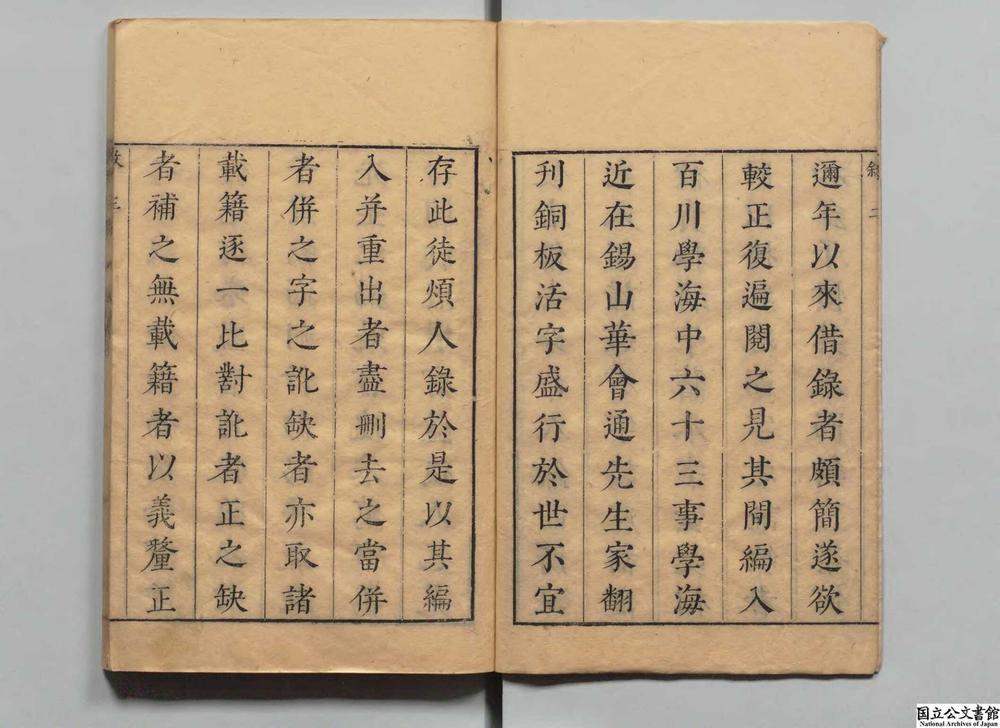 邇年以來借錄者頗簡遂欲
較正復遍閱之見其間編入
百川學海中六十三事學海
近在錫山華會通先生家翻
刊銅板活字盛行於世不宜
存此徒煩人錄於是以其編
入并重出者盡刪去之當併
者併之字之訛缺者亦取諸
載籍逐一比對訛者正之缺
者補之無載籍者以義釐正
国立公文書館
National Archives of Japan